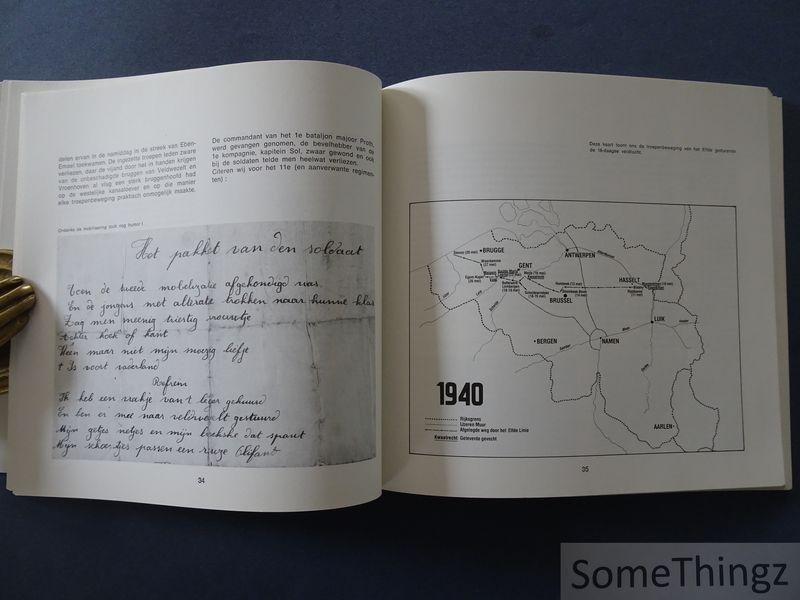 delen ervan in de namiddag in de streek van Eben-
Emael toekwamen. De ingezette troepen leden zware
verliezen, daar de vijand door het in handen krijgen
van de onbeschadigde bruggen van Veldwezelt en
Vroenhoven al vlug een sterk bruggenhoofd had
op de westelijke kanaaloever en op die manier
elke troepenbeweging praktisch onmogelijk maakte.
De commandant van het 1e bataljon majoor Proth,
werd gevangen genomen, de bevelhebber van de
1e kompagnie, kapitein Sol, zwaar gewond en ook
bij de soldaten telde men heelwat verliezen.
Citeren wij voor het 11e (en aanverwante regimen-
ten) :
Ondanks de mobilisering toch nog humor !
Het pakket van den soldaat
Toen de tweede mobelizatie afgekondigd was
En de jongens met alteratie trokken naar hunne klas
Zag men meenig triestig vrouwtje
Achter hoek of kant
Ween maar niet mijn moezig liefje
t Is voort vaderland
Refrein
Ik heb een vrakje van t leger gehuurd
En ben er mee naar veldwezelt gestuurd
Mijn getjes netjes en mijn broekske dat spant
Mijn schoentjes passen een reuze Olifant
34
Deze kaart toont ons de troepenbeweging van het Elfde gedurende
de 18-daagse veldtocht.
BRUGGE
ANTWERPEN
GENT
HASSELT
BRUSSEL
LUIK
BERGEN
NAMEN
AARLEN
1940
Rijksgrens
IJzeren Muur
Afgelegde weg door het Elfde Linie
Kwaatrecht: Geleverde gevecht
35
SomeThingz